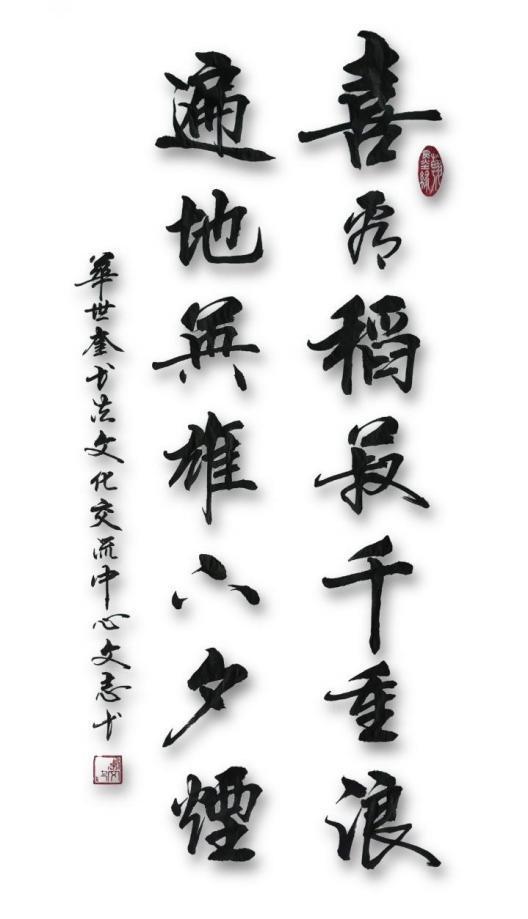 喜看稻菽千重浪
遍地英雄下夕煙
華世奎书法文化交流中心文志书
翰墨緣